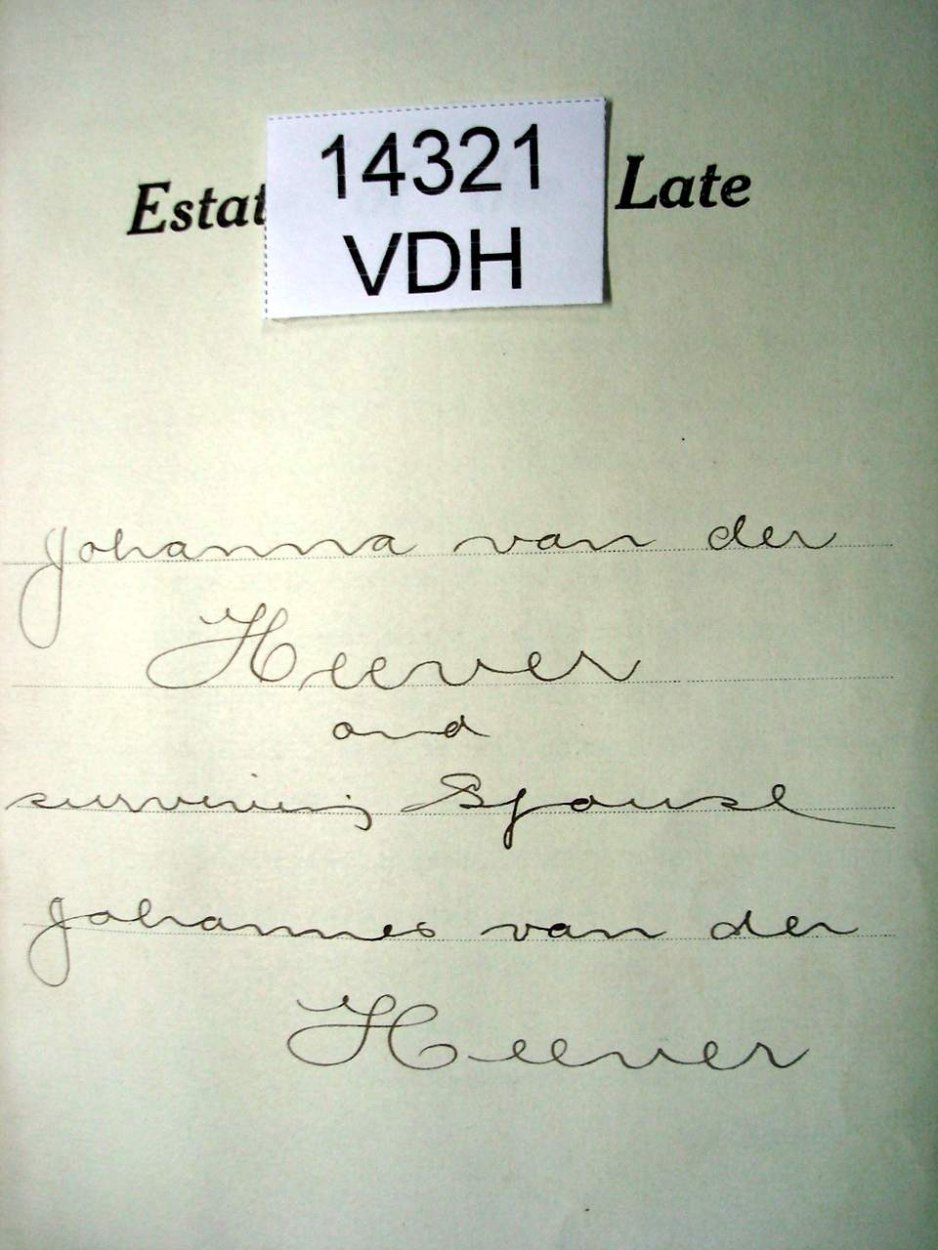 14321
Estat Late
VDH
Johanna van der
Heever
and
surviving Spouse
Johannes van der
Heever